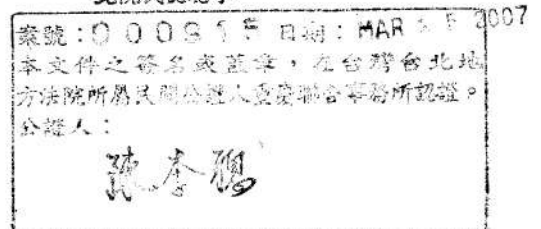 案號： 日期：MAR 2007
本文件之簽名或蓋章，在台灣台北地
方法院所屬民間公證人重慶聯合事務所認證。
公證人：